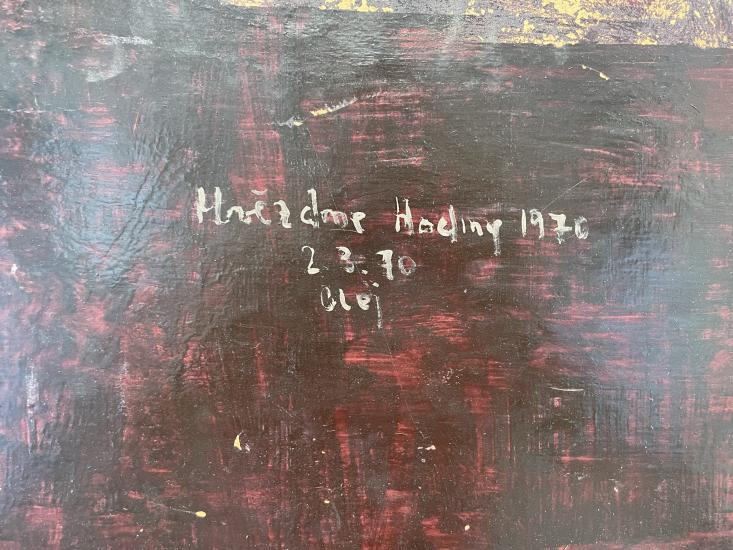 Hvězdne Hodiny 1970
2.3.70
Olej